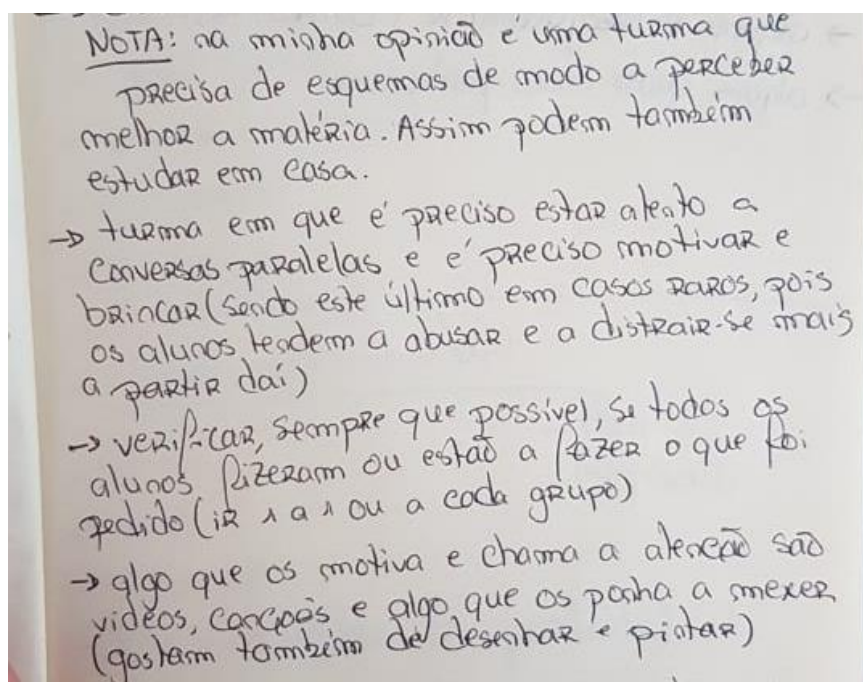 NOTA: na minha opinião é uma turma que
precisa de esquemas de modo a perceber
melhor a matéria. Assim podem também
estudar em casa.
→ turma em que é preciso estar atento a
conversas paralelas e é preciso motivar e
brincar (sendo este último em casos raros, pois
os alunos tendem a abusar e a distrair-se mais
a partir daí)
→ verificar, sempre que possível, se todos os
alunos fizeram ou estão a fazer o que foi
pedido (ir 1 a 1 ou a cada grupo)
→ algo que os motiva e chama a atenção são
vídeos, canções e algo que os ponha a mexer
(gostam também de desenhar e pintar)